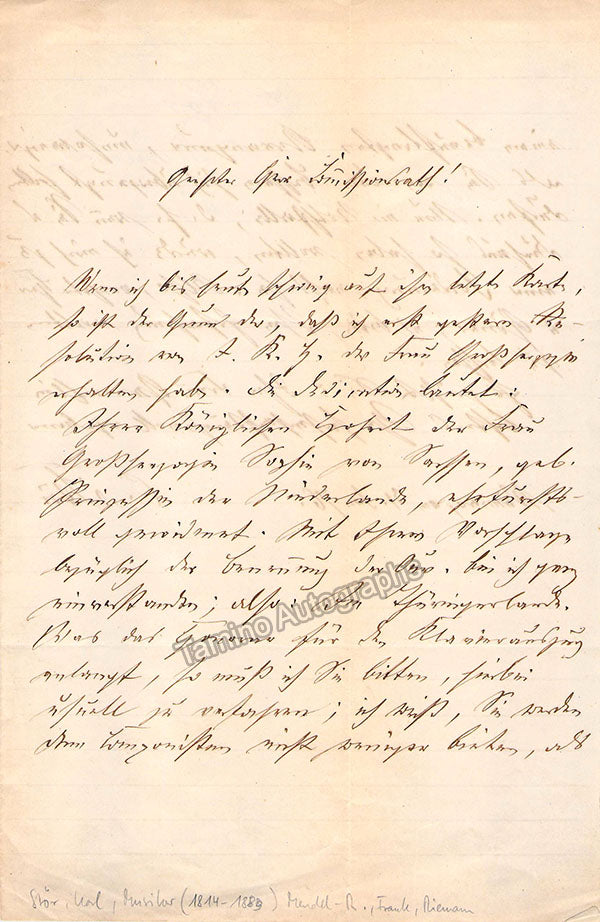 Geehrter Herr Commissionsrath!
Wenn ich bis heute schwieg auf Ihre letzte Karte,
so ist der Grund der, daß ich erst gestern Re-
solution von I. K. H. der Frau Großherzogin
erhalten habe. Die Dedication lautet:
Ihrer Königlichen Hoheit der Frau
Großherzogin Sophie von Sachsen, geb.
Prinzessin der Niederlande, ehrfurchts-
voll gewidmet. Mit Ihrem Vorschlage
bezüglich der Benennung der bin ich ganz
einverstanden; also Thüringerlande.
Was das Honorar für den Klavierauszug
anlangt, so muß ich Sie bitten, hierbei
usuell zu verfahren; ich weiß, Sie werden
dem Componisten nicht weniger bieten, als
Tamino Autographs
Stör, Karl, Musiker (1814-1889) Mendel-R., Frank, Riemann